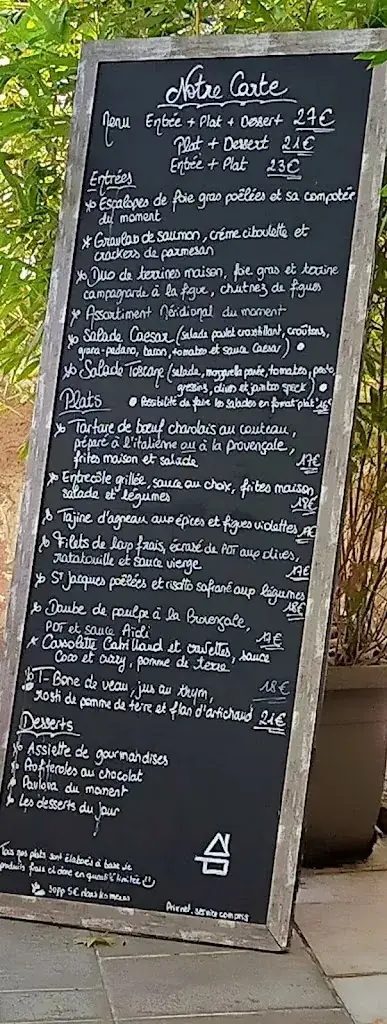 Notre Carte
Menu Entrée + Plat + Dessert 27€
Plat + Dessert 21€
Entrée + Plat 23€
Entrées
* Escalopes de foie gras poêlées et sa compotée
du moment
* Gravlax de saumon, crème ciboulette et
crackers de parmesan
* Duo de terrines maison, foie gras et terrine
campagnarde à la figue, chutney de figues
* Assortiment Méridional du moment
* Salade Caesar (salade, poulet croustillant, croûtons,
grana-padano, bacon, tomates et sauce Caesar)
* Salade Toscane (salade, mozzarella panée, tomates, pesto,
gressins, olives et jambon speck)
Plats • Possibilité de faire les salades en format plat 16€
* Tartare de bœuf charolais au couteau,
préparé à l'italienne ou à la provençale,
frites maison et salade 17€
* Entrecôte grillée, sauce au choix, frites maison
salade et légumes 18€
* Tajine d'agneau aux épices et figues violettes
* Filets de loup frais, écrasé de PDT aux olives,
ratatouille et sauce vierge 17€
* St Jacques poêlées et risotto safrané aux légumes
18€
* Daube de poulpe à la Provençale,
PDT et sauce Aïoli 17€
* Cassolette Cabillaud et crevettes, sauce
Coco et curry, pomme de terre 18€
* T-Bone de veau, jus au thym,
rosti de pomme de terre et flan d'artichaud 21€
Desserts
* Assiette de gourmandises
* Profiteroles au chocolat
* Pavlova du moment
* Les desserts du jour
Tous nos plats sont élaborés à base de
produits frais et donc en quantité limitée
* Supp 5€ dans les menus
Prix net, service compris